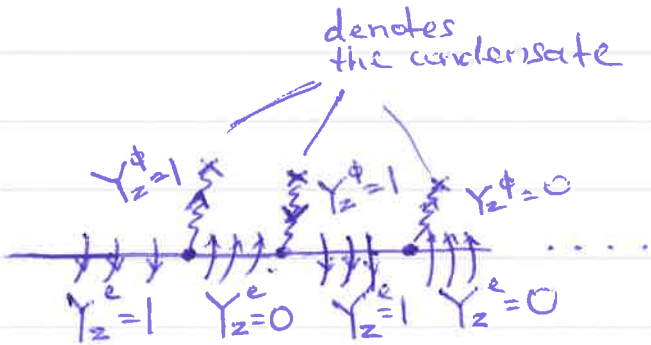 denotes
the condensate
Y_z^φ=1
Y_z^φ=1
Y_z^φ=0
....
Y_z^e=1
Y_z^e=0
Y_z^e=1
Y_z^e=0